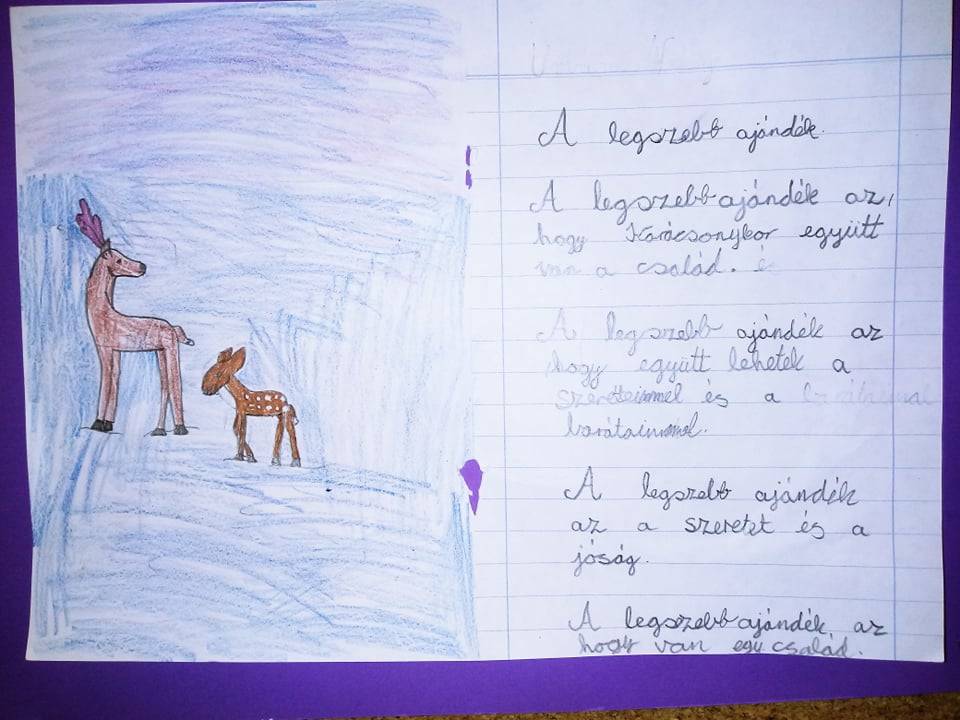 A legszebb ajándék.
A legszebb ajándék az,
hogy Karácsonykor együtt
van a család. é
A legszebb ajándék az
hogy együtt lehetek a
szeretteimmel és a barátaimmal
barátaimmal.
A legszebb ajándék
az a szeretet és a
jóság.
A legszebb ajándék az
hogy van egy család.